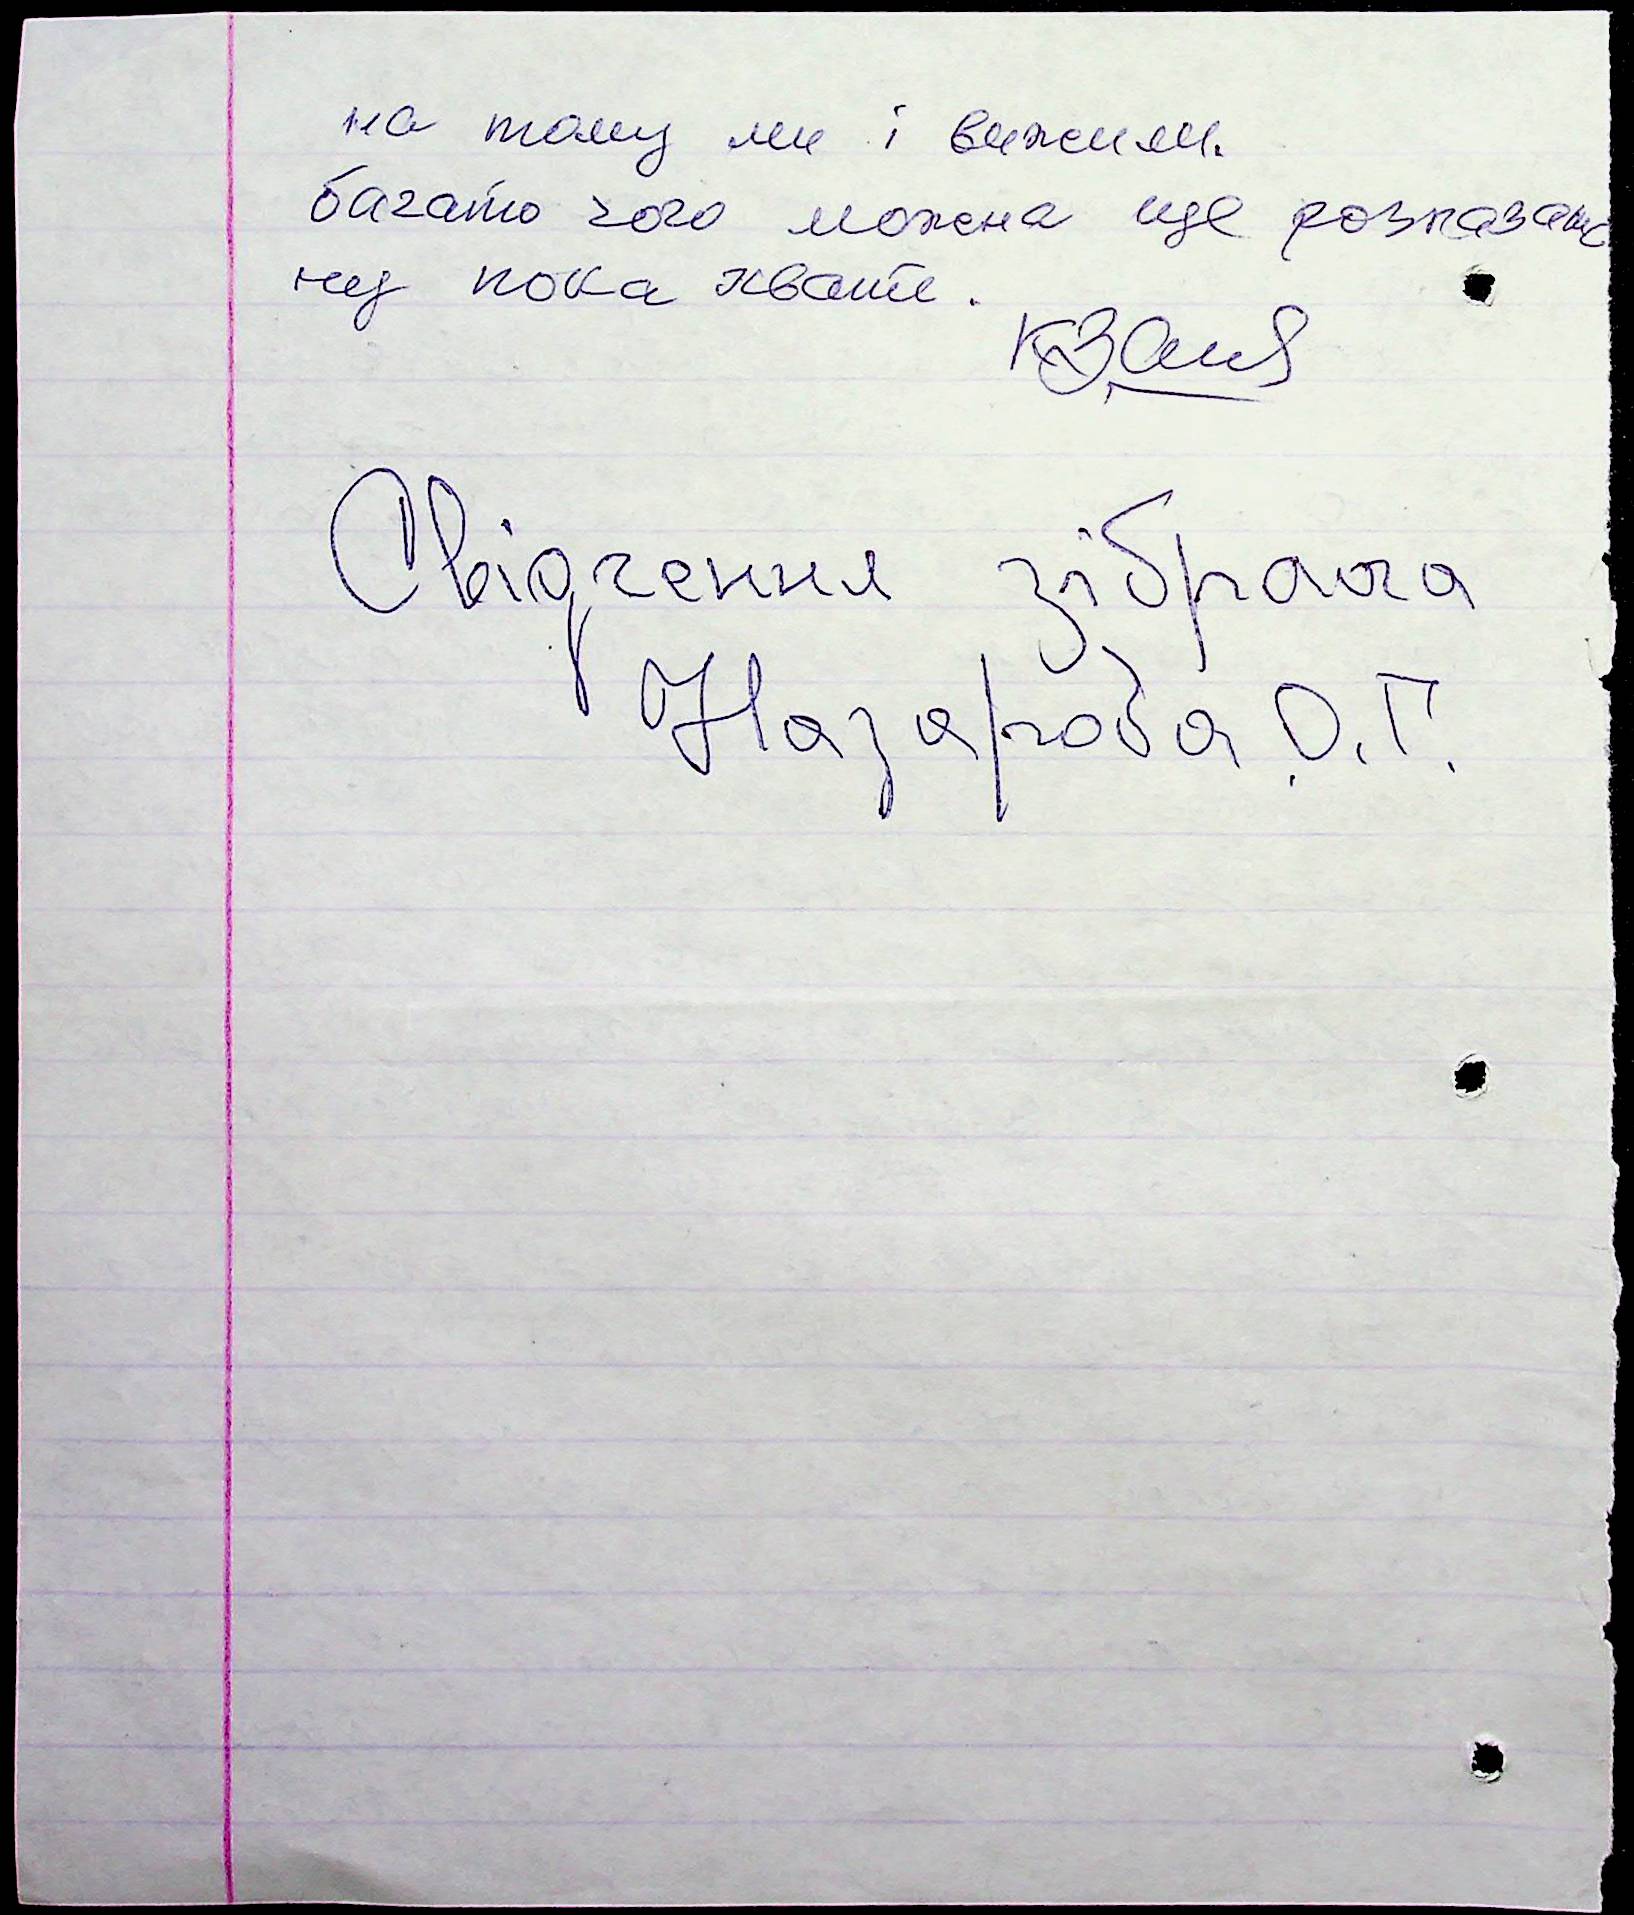 на тому ми і вижили.
багато чого можна ще розказать
ну пока хвате.
Свідчення зібрала
Назарова О.Г.